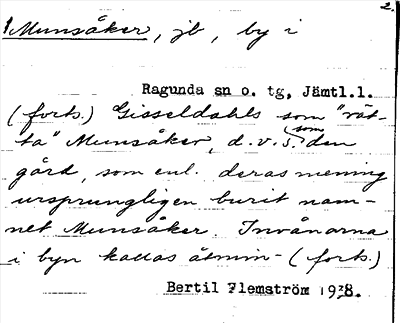 2.
Munsåker, jb, by i
Ragunda sn o. tg, Jämtl.l.
(forts.) Gisseldahls som "rät-
ta" Munsåker, d.v.s. som den
gård, som enl. deras mening
ursprungligen burit nam-
net Munsåker. Invånarna
i byn kallas åtmin- (forts.)
Bertil Flemström 1938.